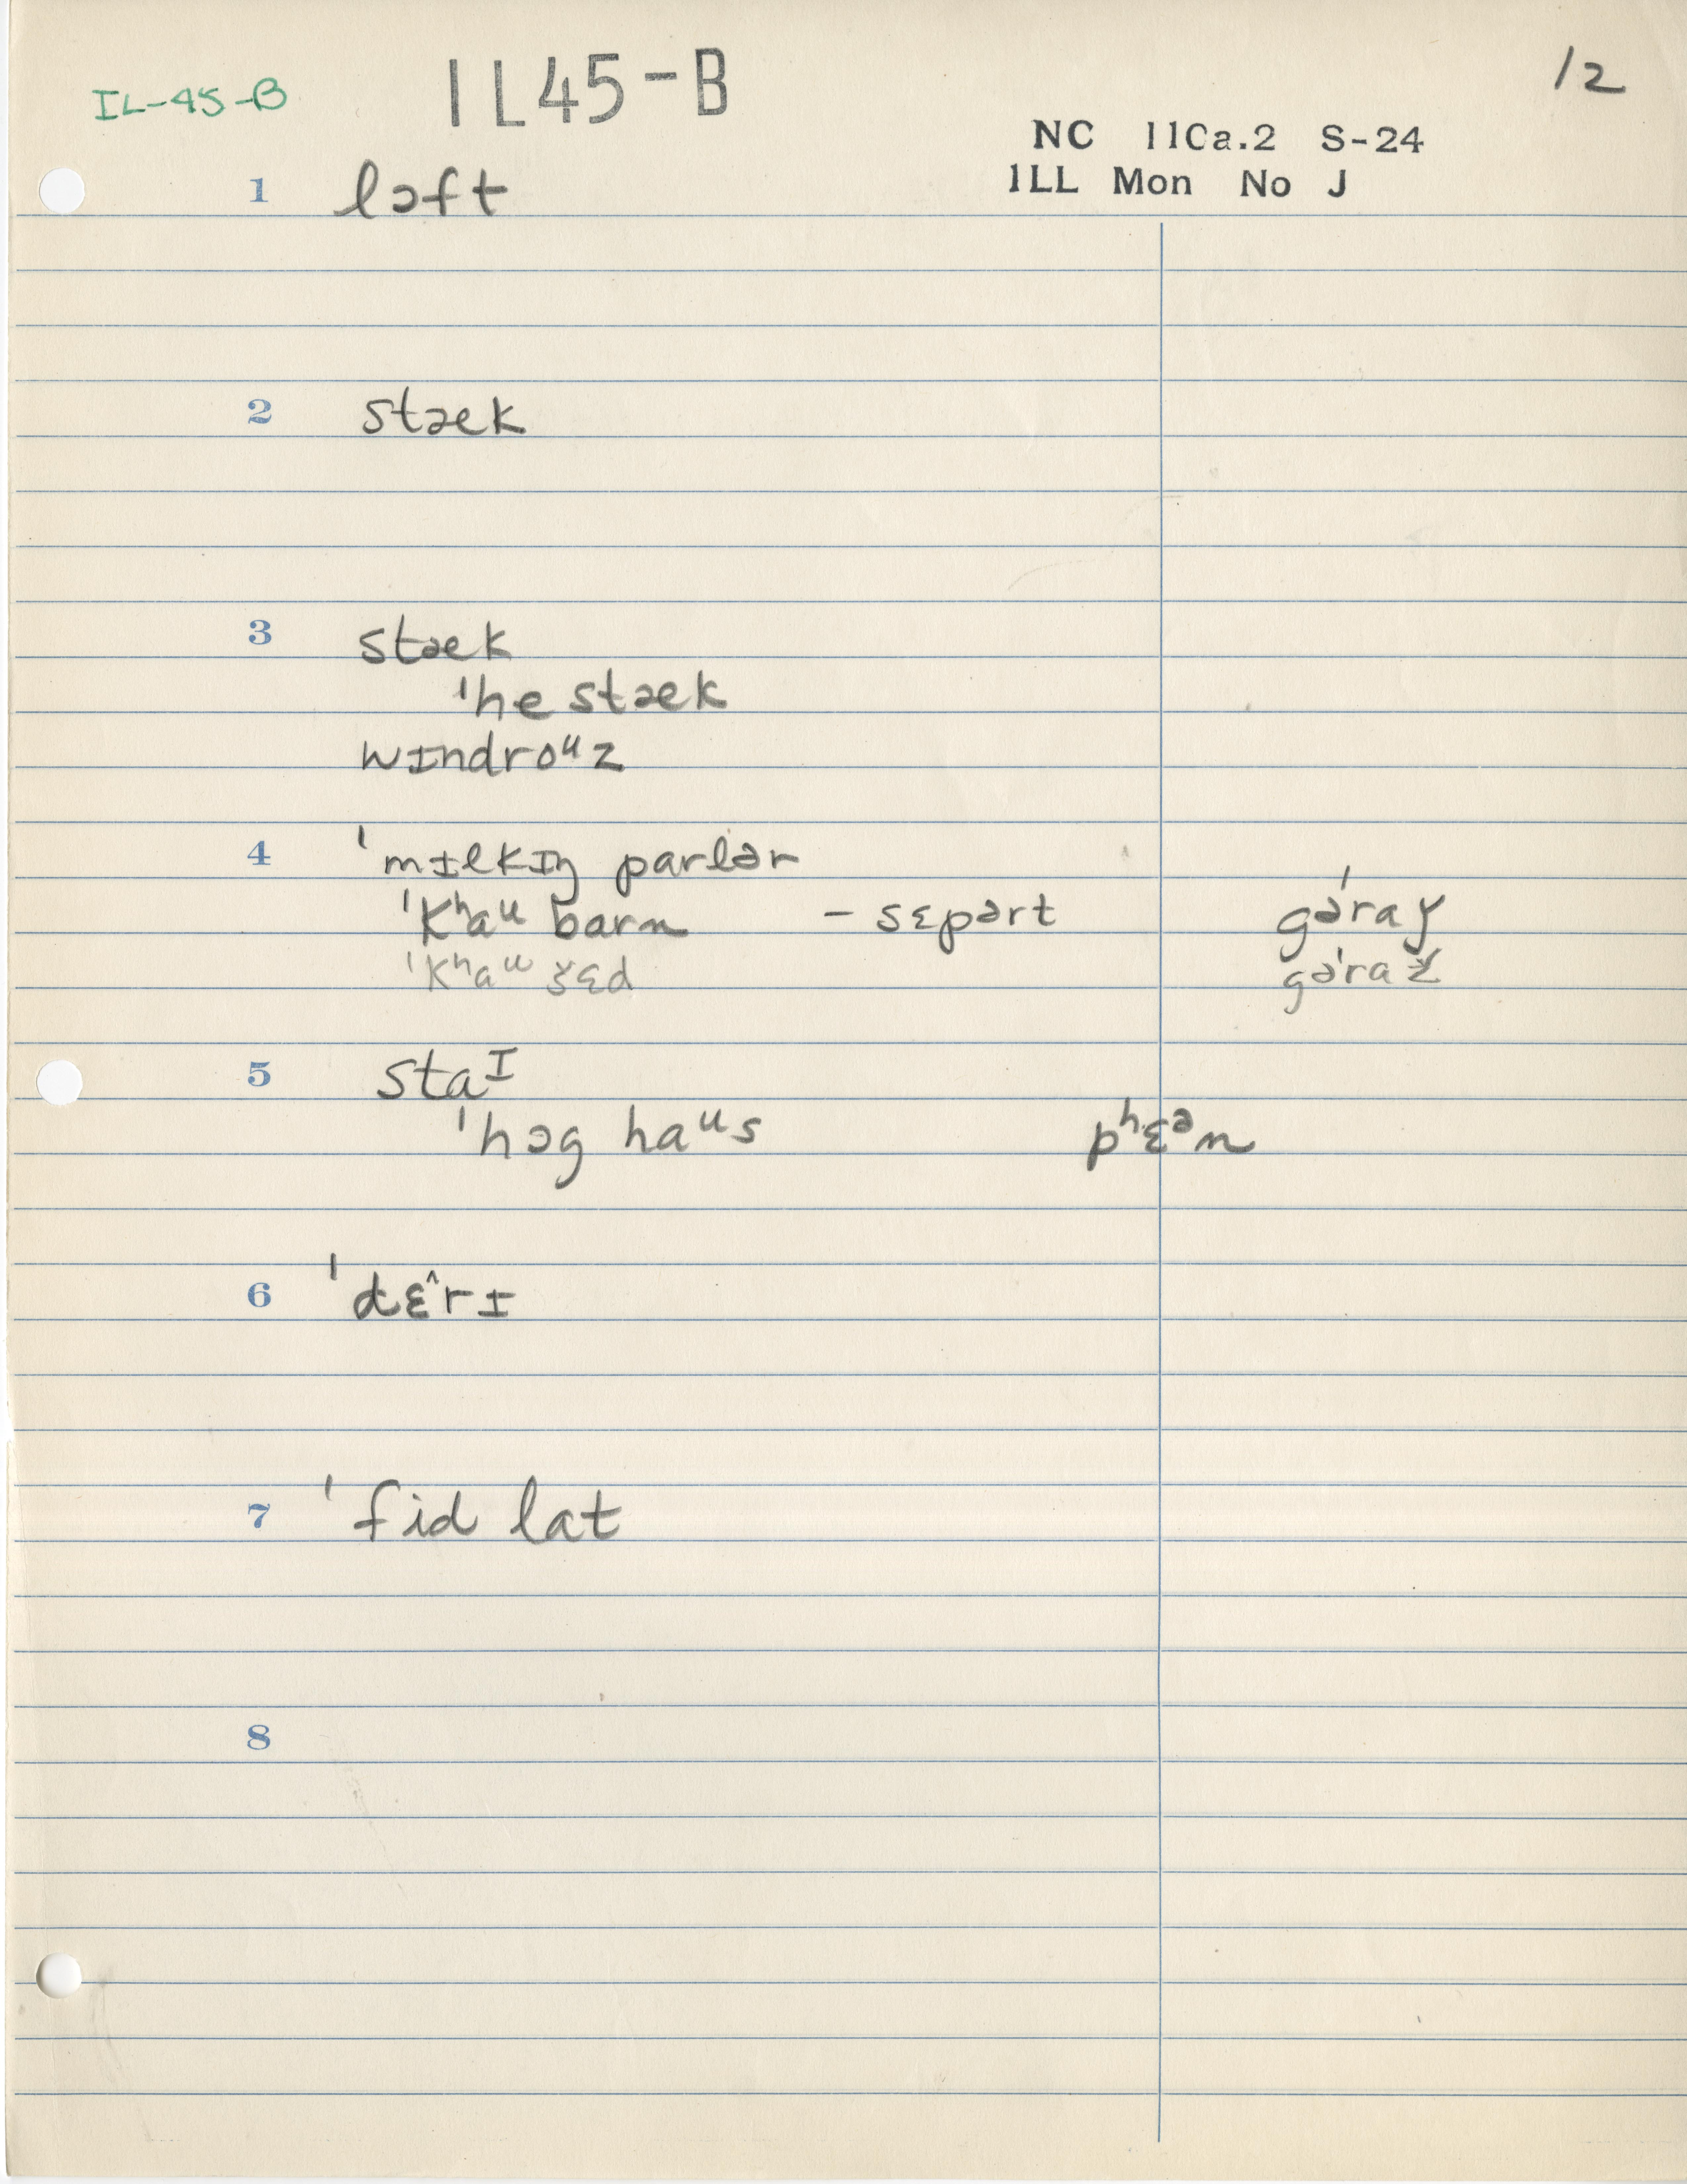 IL-45-B IL45-B 12
NC 110a.2 S-24
ILL Mon No J
1 lɔft
2 stæk
3 stæk
ˈhe stæk
wɪndroᵘz
4 ˈmɪlkɪŋ parlər
ˈkʰaᵘ barn – sɛpərt gəˈraǰ
ˈkʰaᵘ šɛd gəˈraž
5 staᴵ
ˈhɔg haᵘs pʰɛᵊn
6 ˈdɛ^rɪ
7 ˈfid lat
8